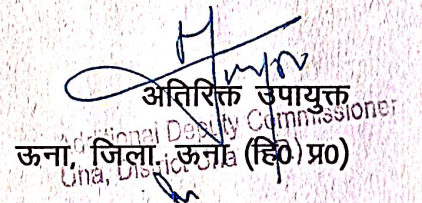 अतिरिक्त उपायुक्त
Additional Deputy Commissioner
ऊना, जिला, ऊना (हि0) प्र0)
Una, District Una